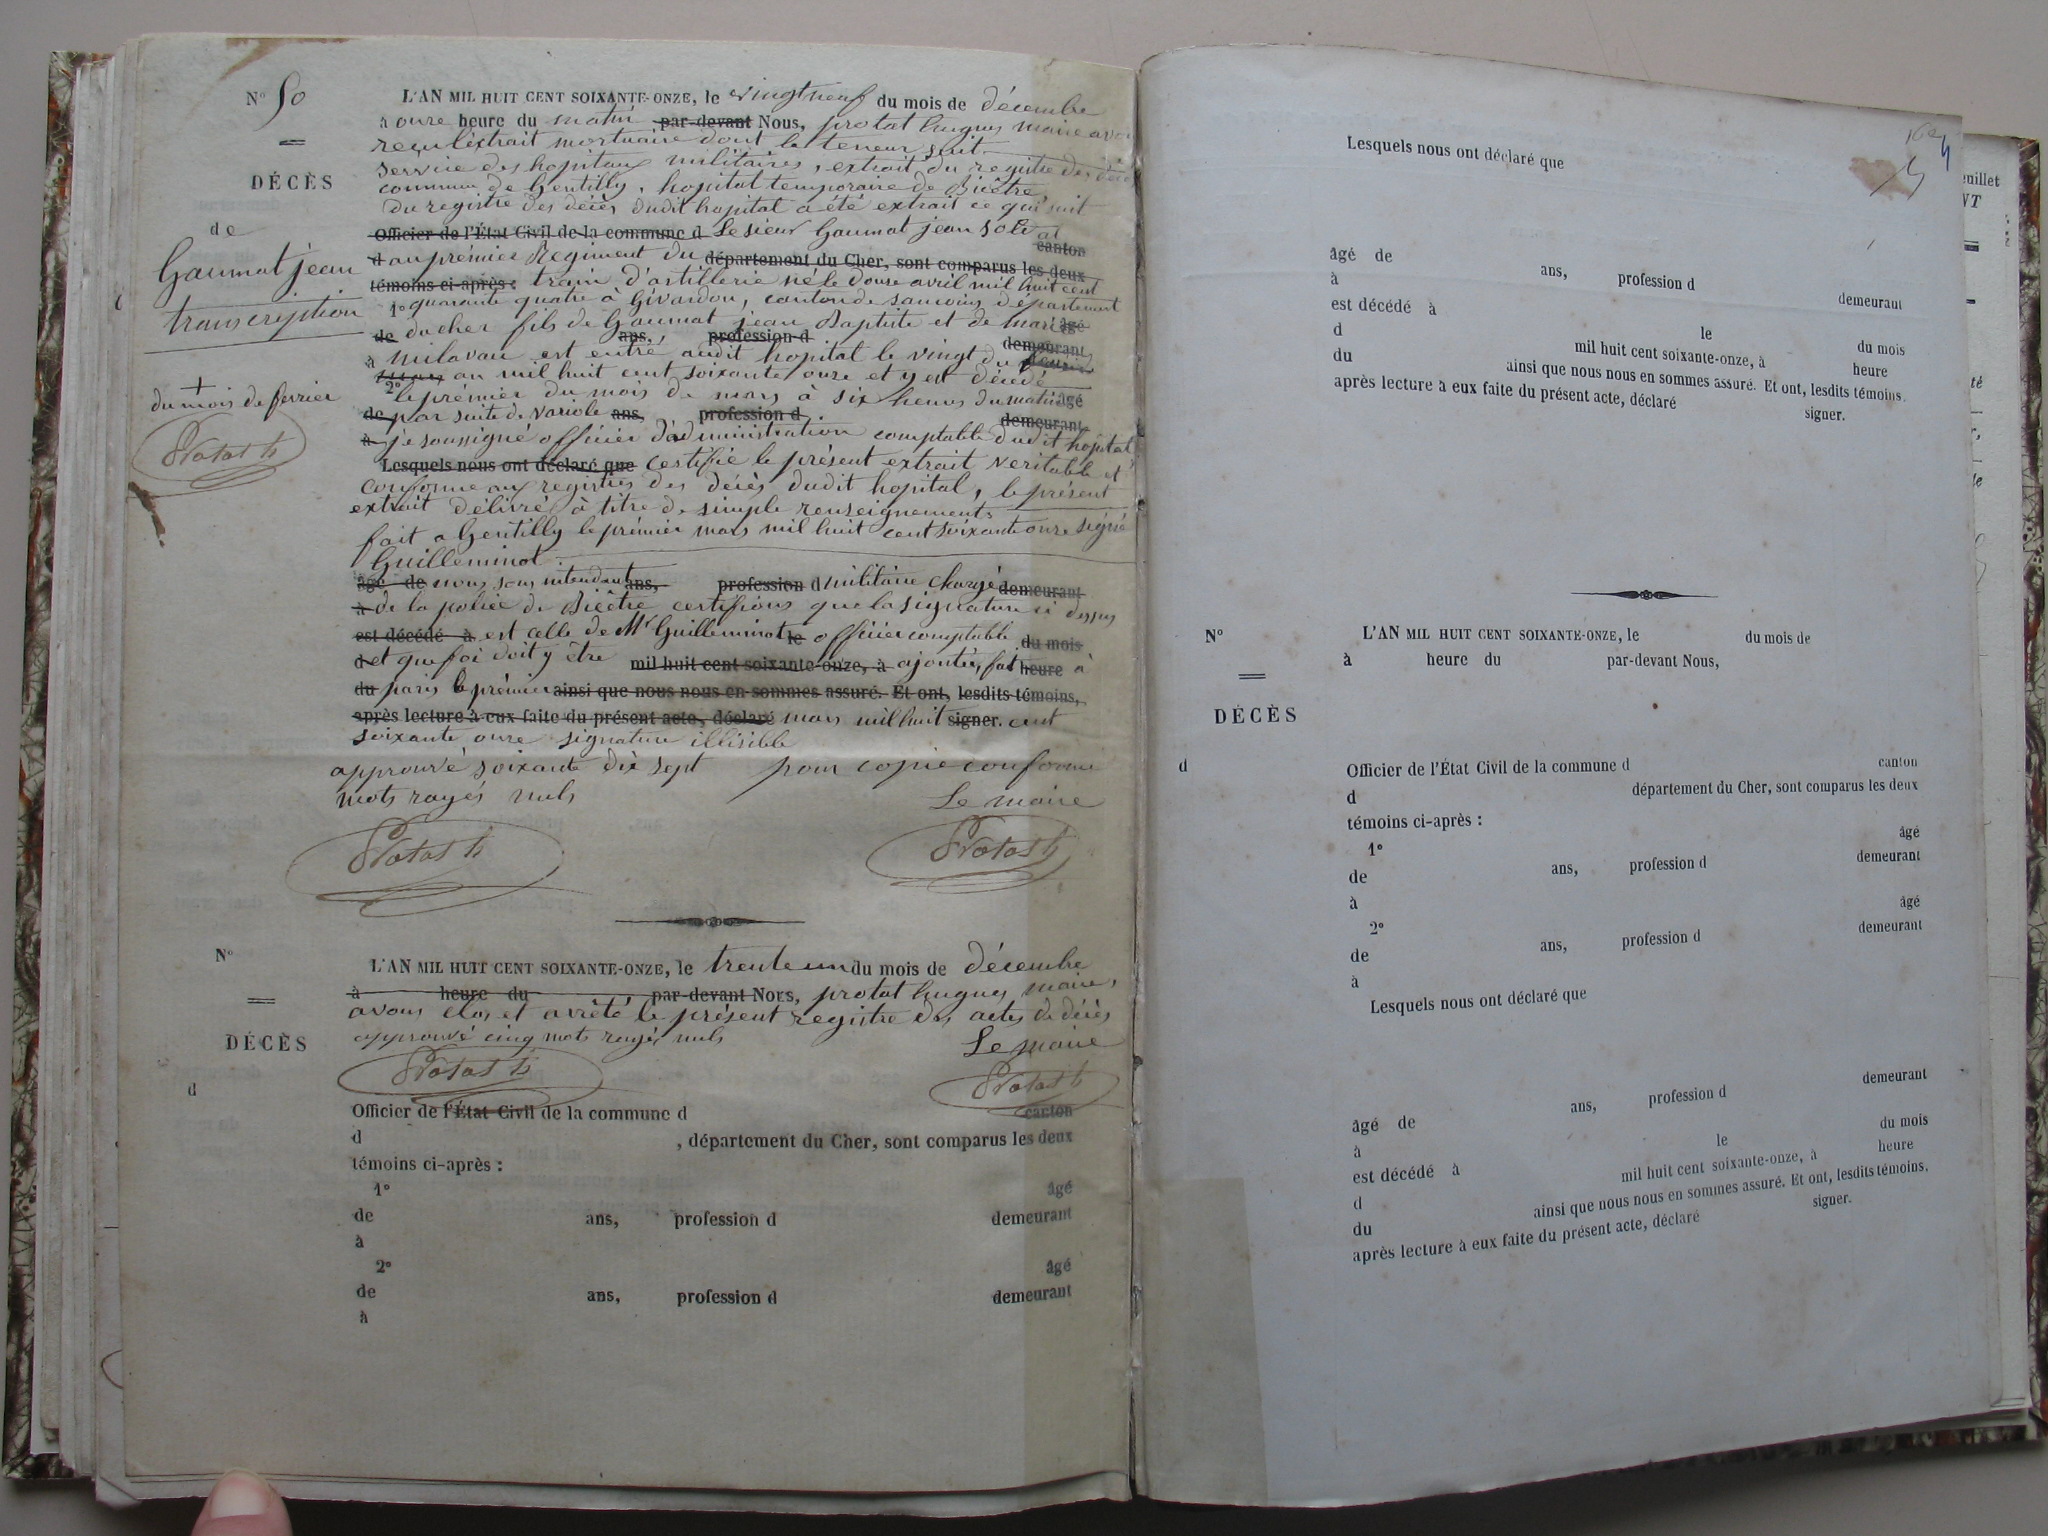 N° 50
DÉCÈS
de
Gaumat jean
transcription
+
du mois de fevrier
Protat h
L'AN MIL HUIT CENT SOIXANTE-ONZE, le vingt neuf du mois de décembre
à onze heure du matin par-devant Nous, protat hugues maire avons
reçu l'extrait mortuaire dont la teneur suit
service des hopitaux militaires, extrait du registre des décès
commune de Gentilly, hopital temporaire de Bicêtre
Du registre des décès dudit hopital a été extrait ce qui suit
Officier de l'État Civil de la commune d Le sieur Gaumat jean soldat
canton
d au prémier Régiment du département du Cher, sont comparus les deux
témoins ci-après : train d'artillerie né le douze avril mil huit cent
1° quarante quatre à Givardon, canton de sancoins département
de du cher fils de Gaumat jean Baptiste et de marie âgé
ans, profession d demeurant
à milavau est entré audit hopital le vingt du
mars an mil huit cent soixante onze et y est décédé
2° le prémier du mois de mars à six heures du matin âgé
de par suite de variole ans, profession d demeurant
à je soussigné officier d'administration comptable dudit hopital
Lesquels nous ont déclaré que certifie le présent extrait veritable et
conforme aux registres des décès dudit hopital, le présent
extrait délivré à titre de simple renseignements
fait a Gentilly le prémier mars mil huit cent soixante onze signé
Guilleminot
âgé de nous sous intendant ans, profession d militaire chargé demeurant
à de la police de Bicêtre certifions que la signature ci dessus
est décédé à est celle de Mr Guilleminot le officier comptable du mois
d et que foi doit y être mil huit cent soixante-onze, à ajoutée, fait heure à
du paris le prémier ainsi que nous nous en sommes assuré. Et ont, lesdits témoins,
après lecture à eux faite du présent acte, déclaré mars mil huit signer. cent
soixante onze signature illisible
approuvé soixante dix sept pour copie conforme
mots rayés nuls Le maire
Protat h Protat h
N°
DÉCÈS
d
L'AN MIL HUIT CENT SOIXANTE-ONZE, le trente un du mois de décembre
à heure du par-devant Nous, protat hugues maire,
avons clos et arrêté le présent registre des actes de décès
approuvé cinq mots rayés nuls Le maire
Protat h Protat h
Officier de l'État Civil de la commune d canton
d , département du Cher, sont comparus les deux
témoins ci-après :
1° âgé
de ans, profession d demeurant
à
2° âgé
de ans, profession d demeurant
à
Lesquels nous ont déclaré que
âgé de ans, profession d demeurant
à
est décédé à le du mois
d mil huit cent soixante-onze, à heure
du ainsi que nous nous en sommes assuré. Et ont, lesdits témoins,
après lecture à eux faite du présent acte, déclaré signer.
N°
DÉCÈS
d
L'AN MIL HUIT CENT SOIXANTE-ONZE, le du mois de
à heure du par-devant Nous,
Officier de l'État Civil de la commune d canton
d département du Cher, sont comparus les deux
témoins ci-après :
1° âgé
de ans, profession d demeurant
à
2° âgé
de ans, profession d demeurant
à
Lesquels nous ont déclaré que
âgé de ans, profession d demeurant
à
est décédé à le du mois
d mil huit cent soixante-onze, à heure
du ainsi que nous nous en sommes assuré. Et ont, lesdits témoins,
après lecture à eux faite du présent acte, déclaré signer.